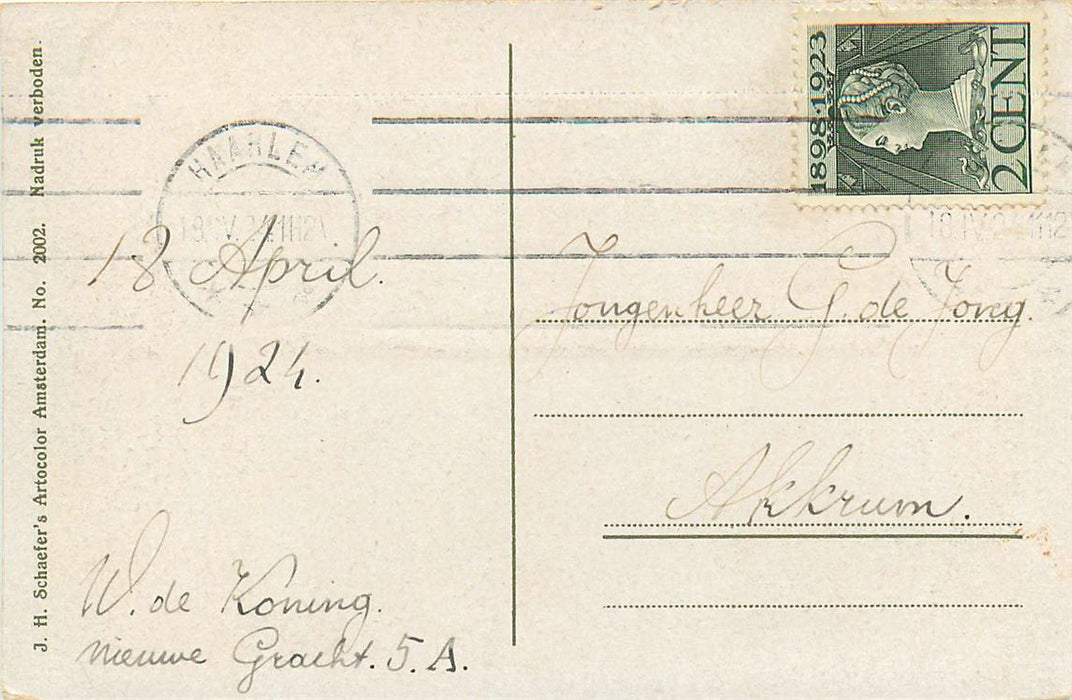 J. H. Schaefer's Artocolor Amsterdam. No. 2002. Nadruk verboden.
HAARLEM
18 April.
1924.
W. de Koning.
nieuwe Gracht. 5. A.
1898·1923
2 CENT
18.IV.2
Jongenheer G. de Jong.
Akkrum.